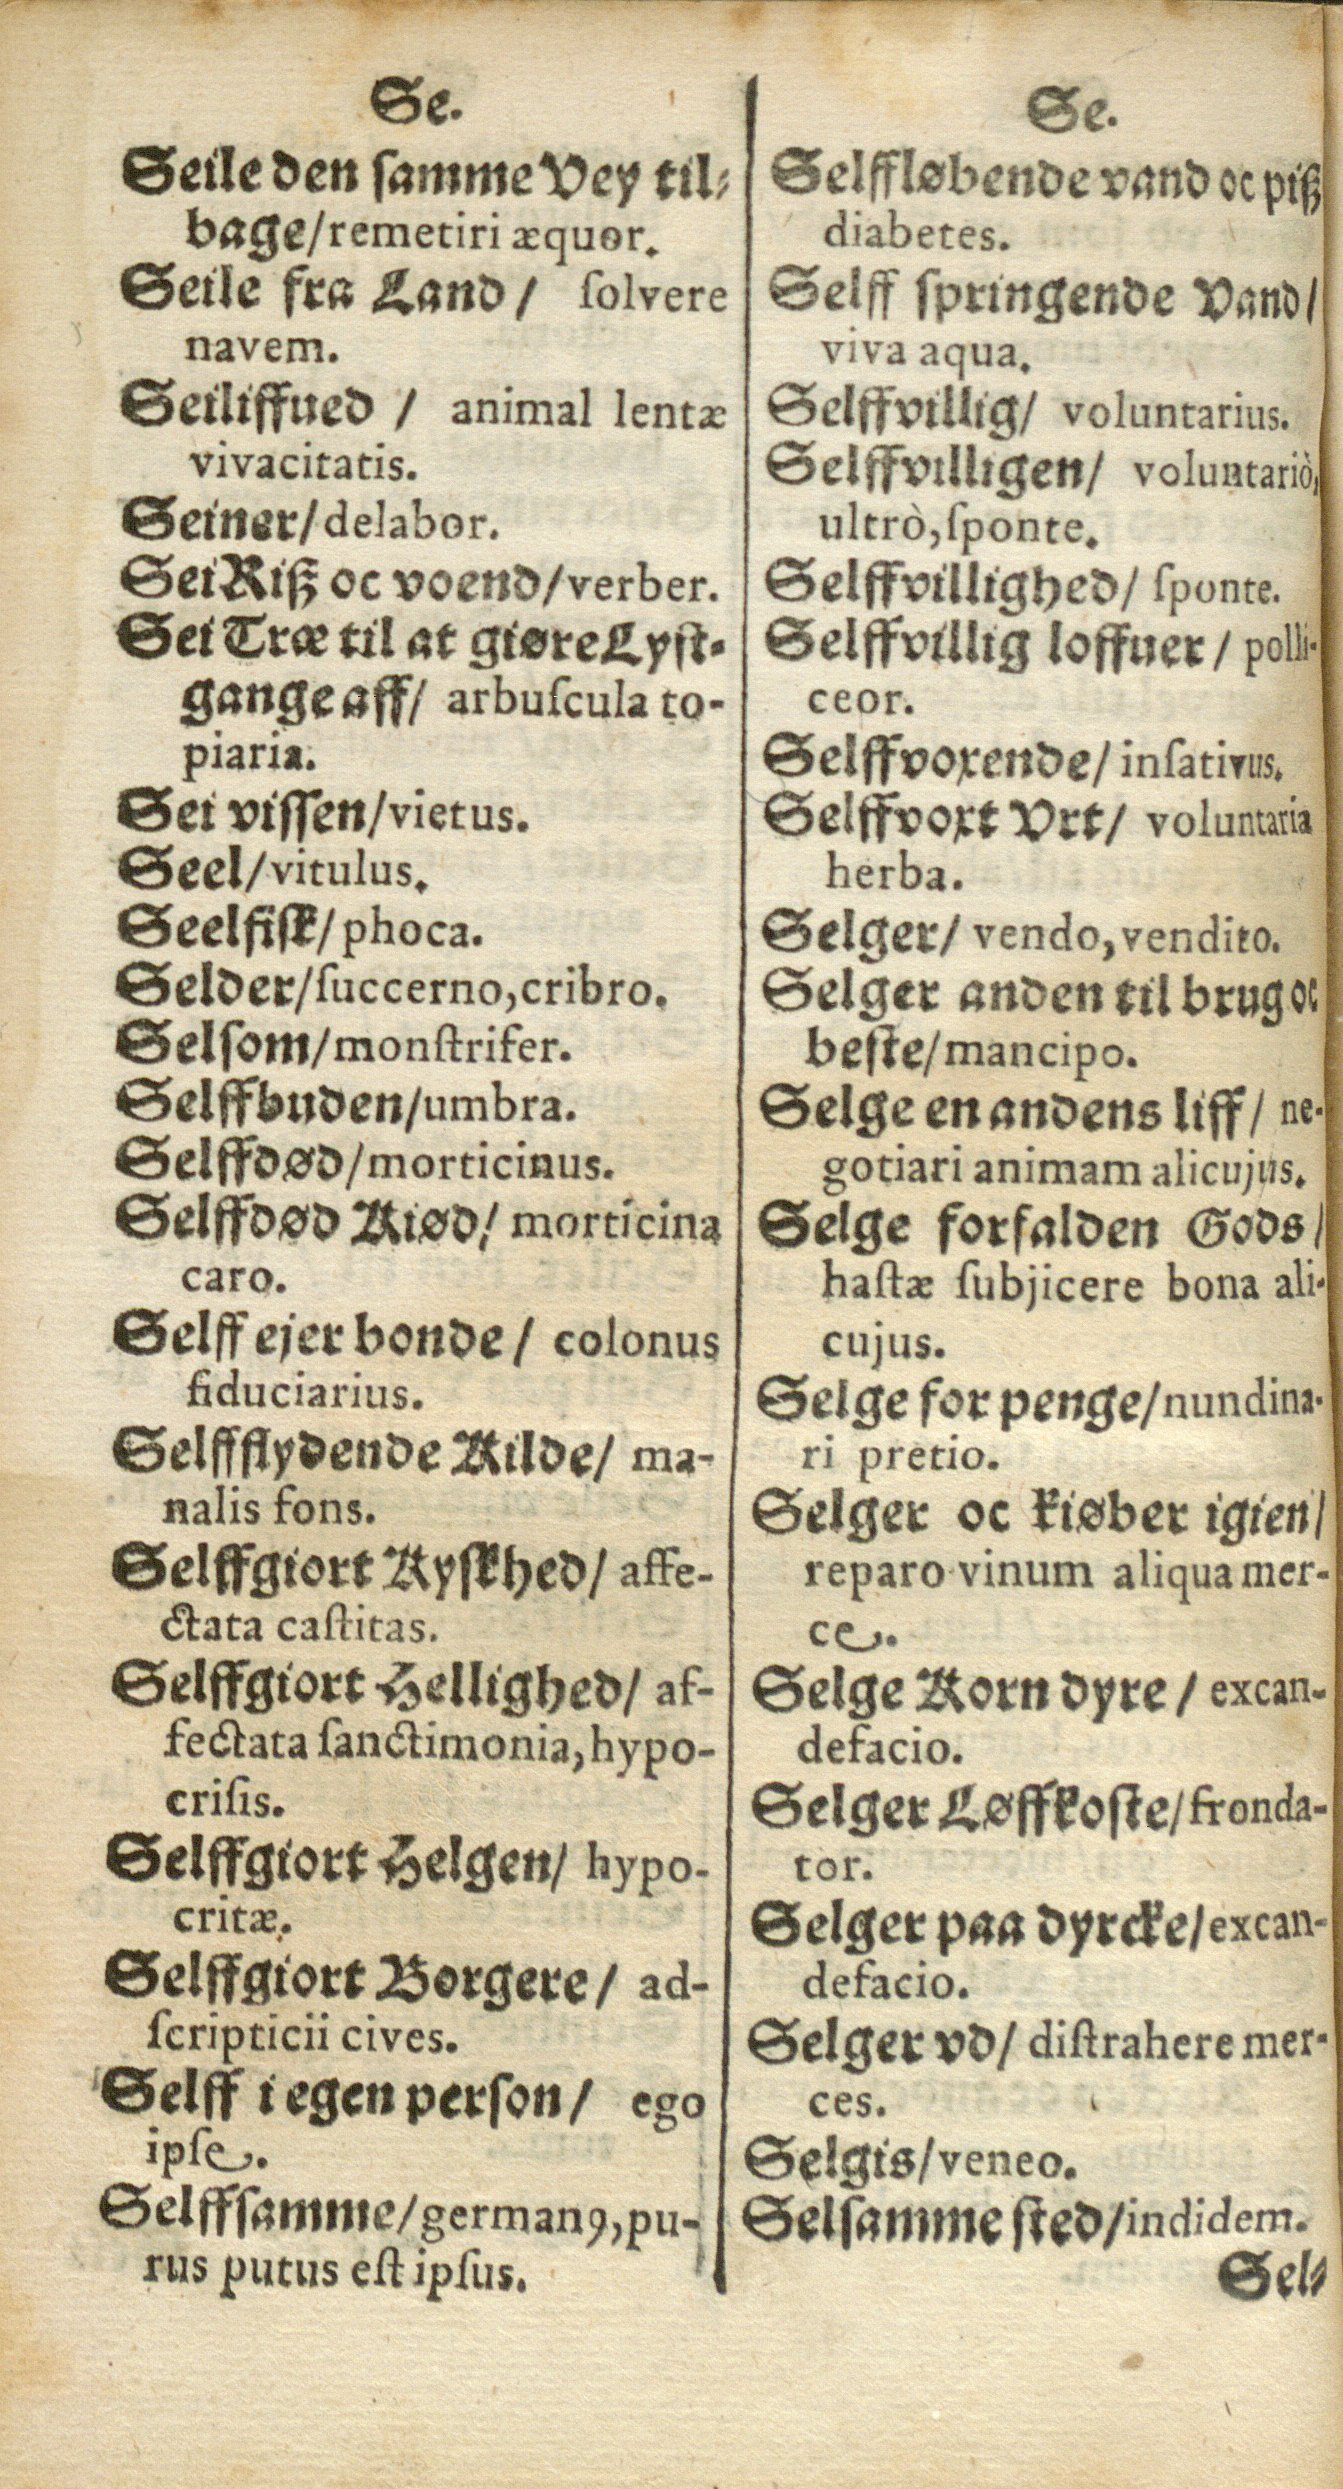 Se.
Seile den ſamme Vey til⸗
bage/remetiri æquor.
Seile fra Land/ ſolvere
navem.
Seiliffued / animal lentæ
vivacitatis.
Seiner/delabor.
Sei Riß oc voend/verber.
Sei Træ til at giøre Lyſt⸗
gange aff/ arbuſcula to-
piaria.
Sei viſſen/vietus.
Seel/vitulus.
Seelfiſk/phoca.
Selder/ſuccerno,cribro.
Selſom/monſtrifer.
Selffbuden/umbra.
Selffdød/morticinus.
Selffdød Kiød/ morticina
caro.
Selff ejer bonde/ colonus
fiduciarius.
Selffflydende Kilde/ ma-
nalis fons.
Selffgiort Kyſkhed/ affe-
ctata caſtitas.
Selffgiort Hellighed/ af-
fectata ſanctimonia,hypo-
criſis.
Selffgiort Helgen/ hypo-
critæ.
Selffgiort Borgere/ ad-
ſcripticii cives.
Selff i egen perſon/ ego
ipſe.
Selffſamme/germanꝰ,pu-
rus putus eſt ipſus.
Se.
Selffløbende vand oc piß
diabetes.
Selff ſpringende Vand/
viva aqua.
Selffvillig/ voluntarius.
Selffvilligen/ voluntariò,
ultrò,ſponte.
Selffvillighed/ ſponte.
Selffvillig loffuer/ polli-
ceor.
Selffvoxende/ inſativus.
Selffvoxt Vrt/ voluntaria
herba.
Selger/ vendo,vendito.
Selger anden til brug oc
beſte/mancipo.
Selge en andens liff/ ne-
gotiari animam alicujus.
Selge forfalden Gods/
haſtæ ſubjicere bona ali-
cujus.
Selge for penge/nundina-
ri pretio.
Selger oc kiøber igien/
reparo vinum aliqua mer-
ce.
Selge Korn dyre/ excan-
defacio.
Selger Løffkoſte/fronda-
tor.
Selger paa dyrcke/excan-
defacio.
Selger vd/ diſtrahere mer-
ces.
Selgis/veneo.
Selſamme ſted/indidem.
Sel⸗